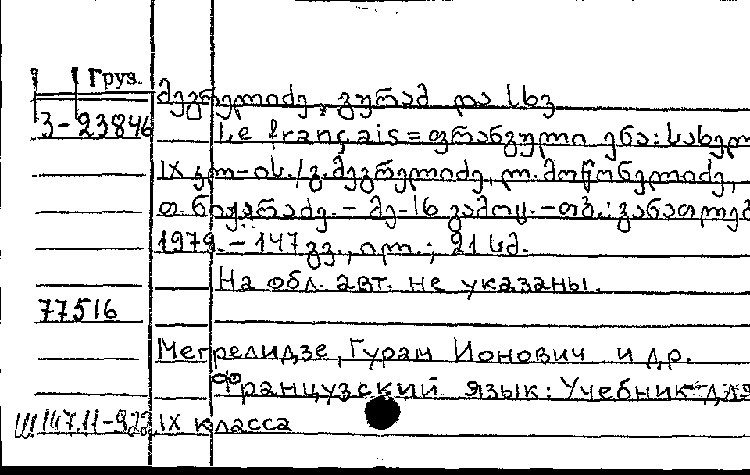 Груз.
მეგრელიძე, გურამ და სხვ
3-23846
Le français = ფრანგული ენა: სახელ
IX კლ-ის./გ.მეგრელიძე, ლ.მოწონელიძე,
თ. ნიჟარაძე. – მე-16 გამოც. – თბ.: განათლებ
1979. – 147 გვ., ილ.; 21 სმ.
На обл. авт. не указаны.
77516
Мегрелидзе, Гурам Ионович и др.
Французский язык: Учебник для
Ш147.11-922 IX класса